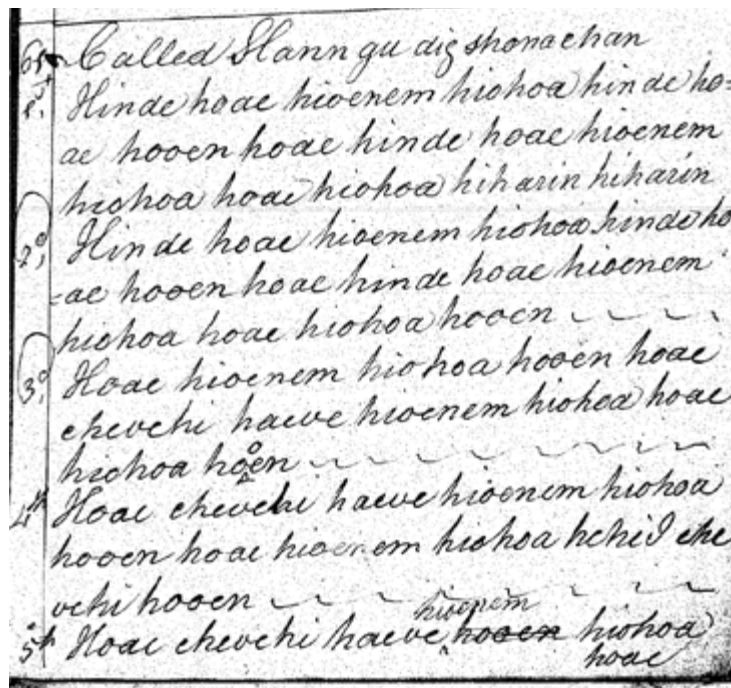 Called Slanngu dig shonachan
1st Hinde hoae hioenem hiohoa hinde ho=
ae hooen hoae hinde hoae hioenem
hiohoa hoae hiohoa hiharin hiharin
2d Hinde hoae hioenem hiohoa hinde ho
=ae hooen hoae hinde hoae hioenem
hiohoa hoae hiohoa hooen
3d Hoae hioenem hiohoa hooen hoae
chevehi haeve hioenem hiohoa hoae
hiohoa hooen
4th Hoae chevehi haeve hioenem hiohoa
hooen hoae hioenem hiohoa hehio che
vehi hooen
5th Hoae chevehi haeve hioenem hiohoa
hoae